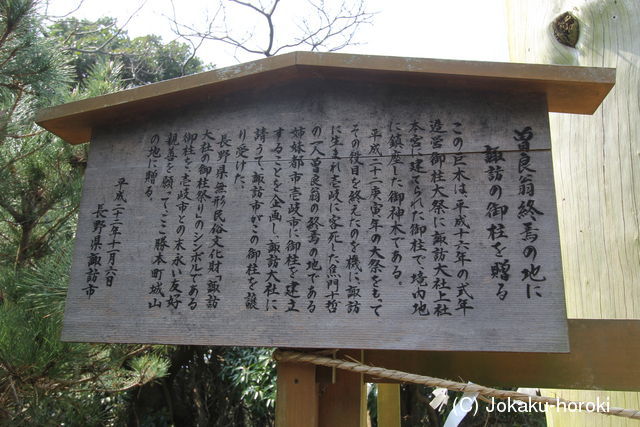 曽良翁終焉の地に
諏訪の御柱を贈る
この巨木は平成十六年の式年
造営御柱大祭に諏訪大社上社
本宮に建てられた御柱で境内地
に鎮座した御神木である。
平成二十二庚寅年の大祭をもって
その役目を終えたのを機に諏訪
に生まれ壱岐に客死した蕉門十哲
の一人曽良翁の終焉の地である
姉妹都市壱岐市に御柱を建立
することを企画し、諏訪大社に
請うて、諏訪市がこの御柱を譲
り受けた。
長野県無形民俗文化財「諏訪
大社の御柱祭り」のシンボルである
御柱を壱岐市との末永い友好
親善を願って、ここ勝本町城山
の地に贈る。
平成二十二年十一月六日
長野県諏訪市
(C) Jokaku-horoki